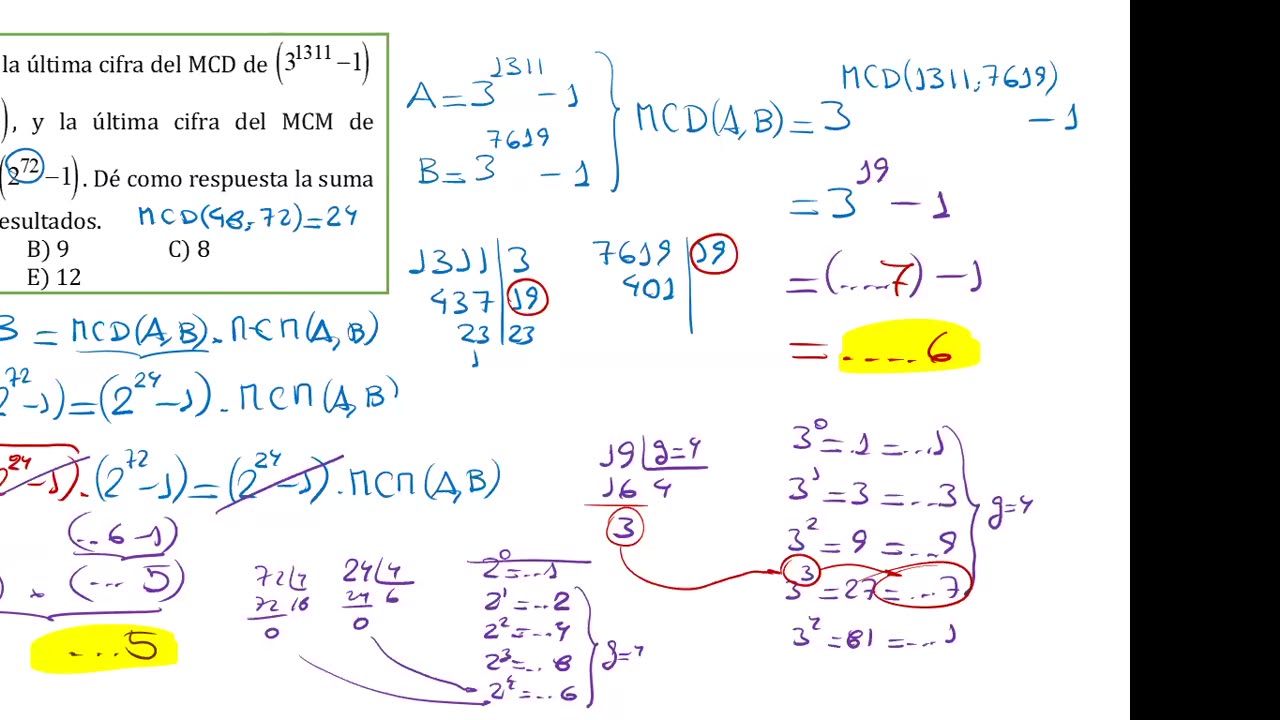 la última cifra del MCD de (3^1311 −1)
), y la última cifra del MCM de
(2^72 −1). Dé como respuesta la suma
esultados. MCD(48,72)=24
B) 9 C) 8
E) 12
B = MCD(A,B).MCM(A,B)
2^72 -1)=(2^24 -1).MCM(A,B)
2^24 -1).(2^72 -1)=(2^24 -1).MCM(A,B)
(..6-1)
) x (...5)
...5
A=3^1311 -1
B=3^7619 -1
MCD(A,B)=3^MCD(1311;7619) -1
=3^19 -1
=(....7)-1
=.....6
1311 3
437 19
23 23
1
7619 19
401
19 g=4
16 4
3
3^0=1=...1
3^1=3=...3
3^2=9=...9
3^3=27=...7
3^4=81=...1
g=4
72 4
72 18
0
24 4
24 6
0
2^0=...1
2^1=..2
2^2=..4
2^3=..8
2^4=..6
g=4